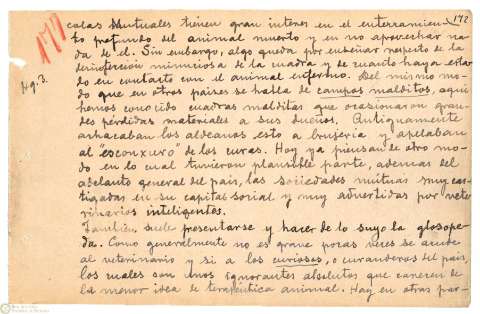 172
177
Ng. 3.
colas Mutuales tienen gran interes en el enterramien-
to profundo del animal muerto y en no aprovechar na-
da de el. Sin embargo, algo queda por enseñar respecto de la
desinfeccion minuciosa de la cuadra y de cuanto haya esta-
do en contacto con el animal enfermo. Del mismo mo-
do que en otros paises se habla de campos malditos, aqui
hemos conocido cuadras malditas que ocasionaron gran-
des pérdidas materiales a sus dueños. Antiguamente
achacaban los aldeanos esto a brujeria y apelaban
al "esconxuro" de los curas. Hoy ya piensan de otro mo-
do en lo cual tuvieron plausible parte, ademas del
adelanto general del pais, las sociedades mutuas muy cas-
tigadas en su capital social y muy advertidas por vete-
rinarios inteligentes.
Tambien suele presentarse y hacer de lo suyo la glosope-
da. Como generalmente no es grave pocas veces se acude
al veterinario y si a los curiosos, o curanderos del pais,
los cuales son unos ignorantes absolutos que carecen de
la menor idea de terapéutica animal. Hay en otras par-